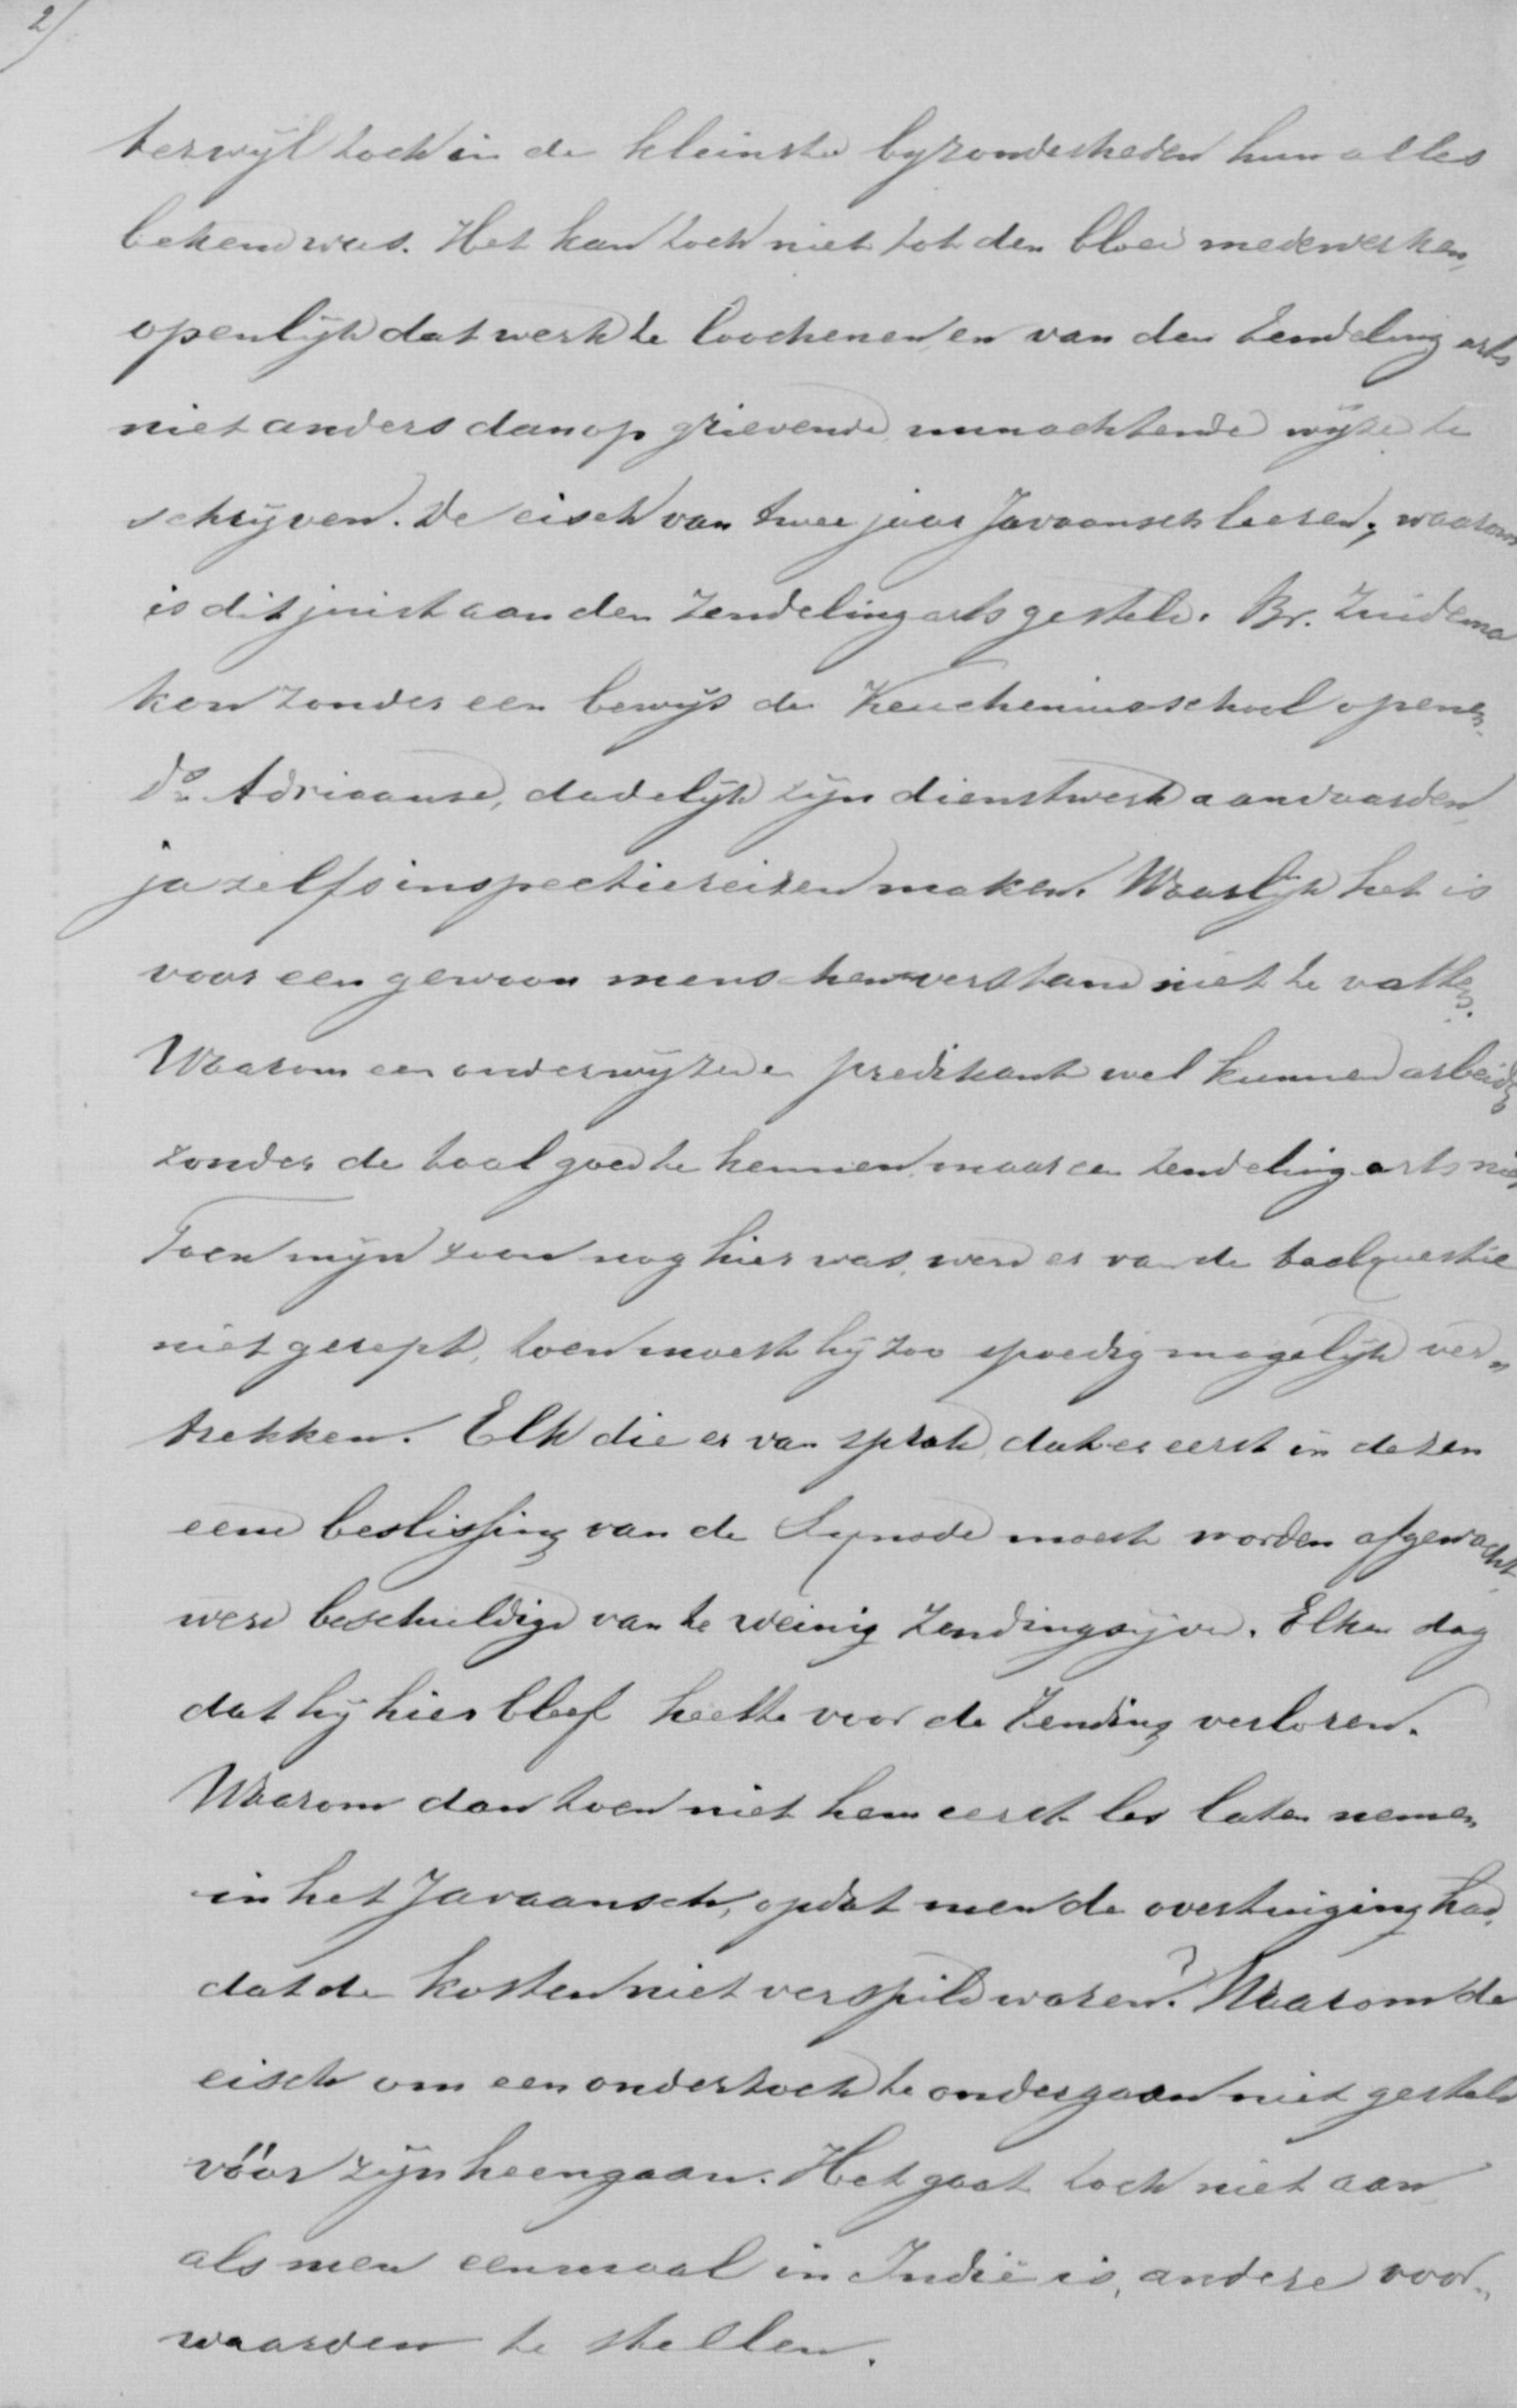 2)
terwijl toch in de kleinste byzonderheden hun alles
bekend was. Het kan toch niet tot den bloei medewerken,
openlijk dat werk te loochenen, en van den Zendeling arts
niet anders dan op grievende, minachtende wijze te
schrijven. De eisch van twee jaar Javaansch leeren, waarom
is dit juist aan den Zendeling arts gesteld. Br. Zuidema
kon zonder een bewijs de Keucheniusschool openen,
Ds. Adriaanse, dadelijk zijn dienstwerk aanvaarden,
ja zelfs inspectiereizen maken. Waarlijk het is
voor een gewoon menschenverstand niet te vatten.
Waarom een onderwijzer en predikant wel kunnen arbeiden
zonder de taal goed te kennen, maar een zendeling arts niet
Toen mijn zoon nog hier was, werd er van de taalquestie
niet gerept, toen moest hij zoo spoedig mogelijk ver„
trekken. Elk die er van sprak, dat er eerst in dezen
eene beslissing van de Synode moest worden afgewacht,
werd beschuldigd van te weinig Zendingsijver. Elken dag
dat hij hier bleef heette voor de Zending verloren.
Waarom dan toen niet hem eerst les laten nemen
in het Javaansch, opdat men de overtuiging had,
dat de kosten niet verspild waren? Waarom de
eisch om een onderzoek te ondergaan niet gesteld
vóór zijn heengaan. Het gaat toch niet aan
als men eenmaal in Indië is, andere voor„
waarden te stellen.